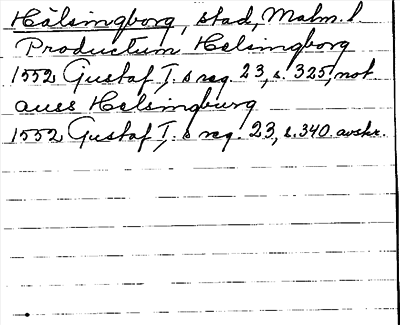 Hälsingborg, stad, Malm. l
Productum Helsingborg
1552 Gustaf I:s reg. 23, s. 325, not
auss Helsingburg
1552 Gustaf I:s reg. 23, s. 340 avskr.